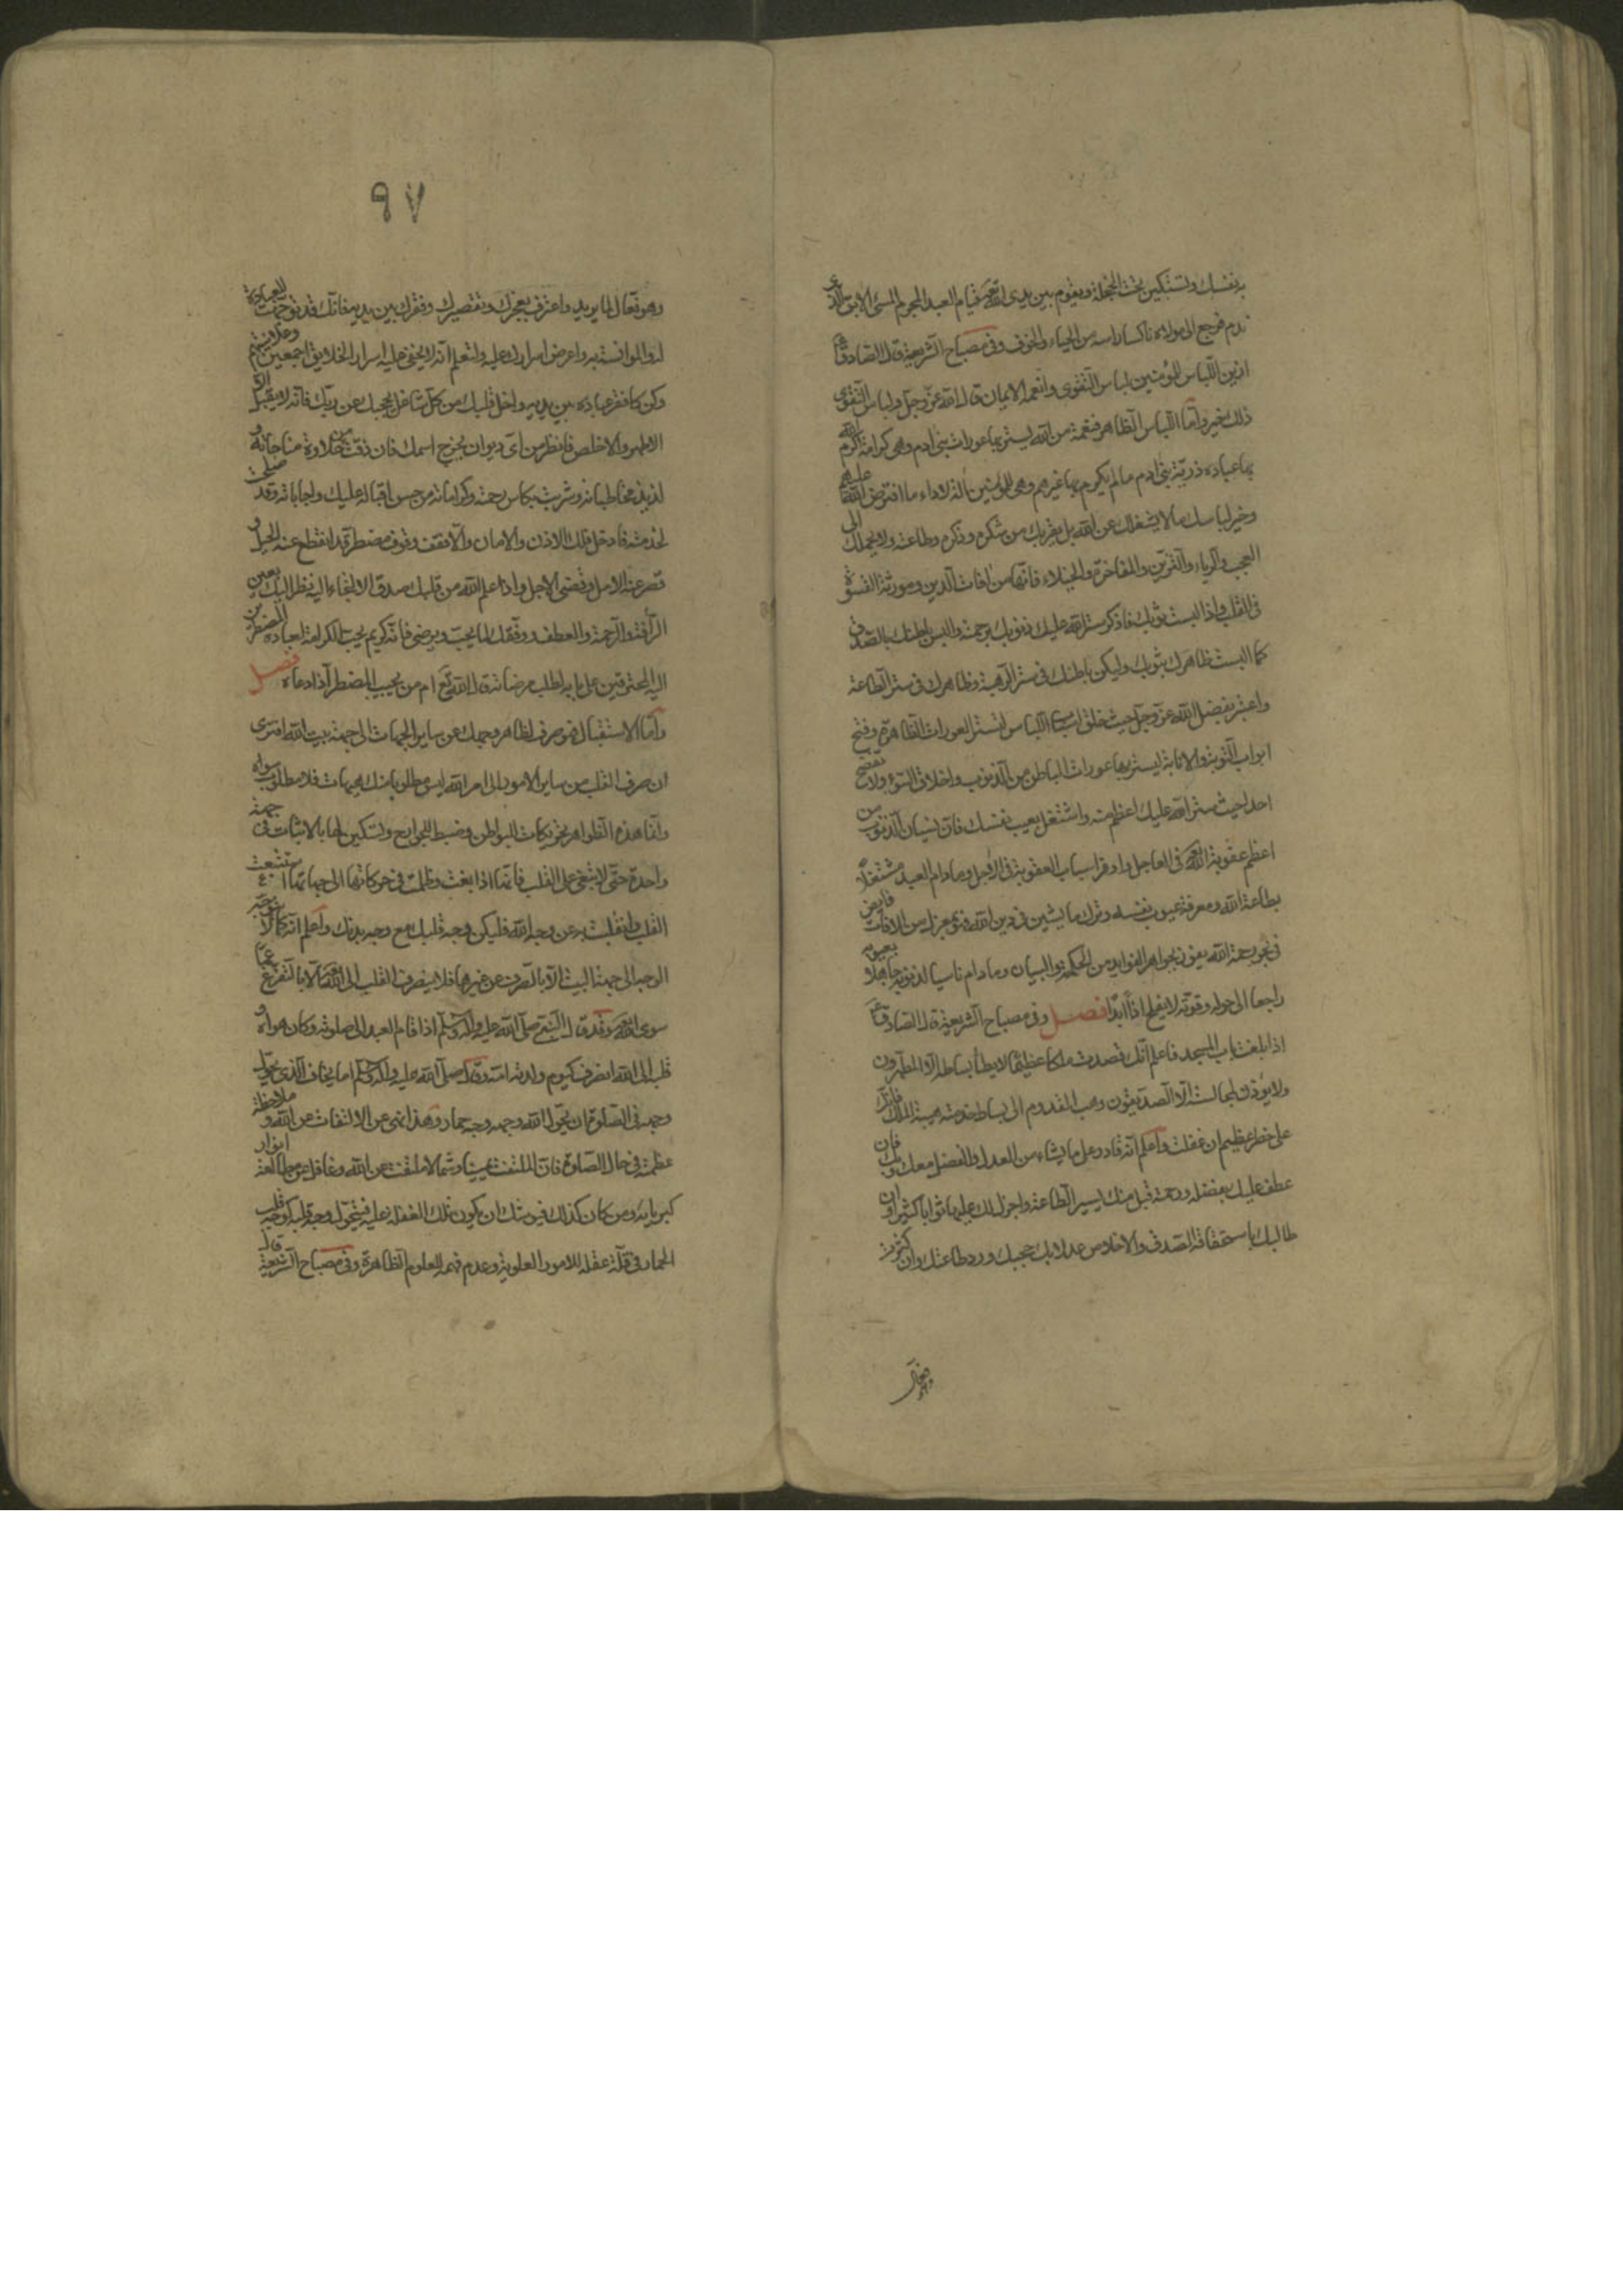 به نفسك وتستكين تحت الخجلة ويقوم بين يدى الله عز قيام العبد المجرم المسئ الابق الذى
ندم فرجع الى مولاه ناكسا راسه من الحياء والخوف وفى مصباح الشريعة قال الصادق ع
ازين اللباس للمؤمنين لباس التقوى وانعمه الايمان قال الله عز وجل ولباس التقوى
ذلك خير واما اللباس الظاهر فنعمة من الله ليستر بها عورات بنى ادم وهى كرامة اكرم الله
بها عباده ذرية بنى ادم ما لم يكرم بها غيرهم وهى للمؤمنين الة لاداء ما افترض الله عليهم
وخير لباسك ما لا يشغلك عن الله بل يقربك من شكره وذكره وطاعته ولا يحملك الى
العجب والرياء والتزين والمفاخرة والخيلاء فانها من افات الدين ومورثة القسوة
فى القلب واذا لبست ثوبك فاذكر ستر الله عليك ذنوبك برحمته والبس باطنك بالصدق
كما البست ظاهرك بثوبك وليكن باطنك فى ستر الرهبة وظاهرك فى ستر الطاعة
واعتبر بفضل الله عز وجل حيث خلق اسباب اللباس لتستر العورات الظاهرة وفتح
ابواب التوبة والانابة ليستر بها عورات الباطن من الذنوب واخلاق السوء ولا تفضح
احدا حيث ستر الله عليك اعظم منه واشتغل بعيب نفسك فان نسيان الذنوب من
اعظم عقوبة الله فى العاجل واوفر اسباب العقوبة فى الاجل وما دام العبد مشتغلا
بطاعة الله ومعرفة عيوب نفسه وترك ما يشين فى دين الله فهو بمعزل من الافات فايض
فى بحر رحمة الله يفوز بجواهر الفوايد من الحكمة والبيان وما دام ناسيا لذنوبه جاهلا بعيوبه
راجعا الى حوله وقوته لا يفلح اذا ابدا فصل وفى مصباح الشريعة قال الصادق ع
اذا بلغت باب المسجد فاعلم انك قصدت ملكا عظيما لا يطأ بساطه الا المطهرون
ولا يؤذن لمجالسته الا الصديقون وهب القدوم الى بساط خدمته هيبة الملك فانك
على خطر عظيم ان غفلت واعلم انه قادر على ما يشاء من العدل والفضل معك وبك فان
عطف عليك بفضله ورحمته قبل منك يسير الطاعة واجزل لك عليها ثوابا كثيرا وان
طالبك باستحقاقه الصدق والاخلاص عدلا بك حجبك ورد طاعتك وان كثرت
٩٧
وهو تعالى لما يريد واعترف بعجزك وتقصيرك وفقرك بين يديه فانك قد توجهت للعبادة
له والموانسة به واعرض اسرارك عليه ولتعلم انه لا يخفى عليه اسرار الخلايق اجمعين وعلانيتهم
وكن كافقر عباده بين يديه واخل قلبك من كل شاغل يحجبك عن ربك فانه لا يقبل الا
الاطهر والاخلص فانظر من اى ديوان يخرج اسمك فان ذقت من حلاوة مناجاته و
لذيذ مخاطباته وشربت بكاس رحمته وكراماته من حسن اقباله عليك واجاباته وقد صلحت
لخدمته فادخل فلك الاذن والامان والا فقف وقوف مضطر قد انقطع عنه الحيل و
قصر عنه الامل وقضى الاجل واذا علم الله من قلبك صدق الالتجاء اليه نظر اليك بعين
الرأفة والرحمة والعطف ووفقك لما يحب ويرضى فانه كريم يحب الكرامة لعباده المضطرين
اليه المحترقين على بابه لطلب مرضاته قال الله تع ام من يجيب المضطر اذا دعاه فصل
واما الاستقبال فهو صرف لظاهر وجهك عن ساير الجهات الى جهة بيت الله افترى
ان صرف القلب من ساير الامور الى امر الله ليس مطلوبا منك هيهات فلا مطلوب سواه
وانما هذه الظواهر تحريكات البواطن وضبط للجوارح وتسكين لها بالاثبات فى جهة
واحدة حتى لا تبغى على القلب فانها اذا بغت وظلمت فى حركاتها الى جهاتها استتبعت
القلب وانقلبت به عن وجه الله فليكن وجه قلبك مع وجه بدنك واعلم انه كما لا يتوجه
الوجه الى جهة البيت الا بالصرف عن غيرها فلا ينصرف القلب الى الله الا بالتفرغ عما
سوى الله وقد قال النبى صلى الله عليه واله وسلم اذا قام العبد الى صلوته وكان هواه و
قلبه الى الله انصرف كيوم ولدته امه وقال صلى الله عليه واله وسلم اما يخاف الذى يحول
وجهه فى الصلوة ان يحول الله وجهه وجه حمار وهذا نهى عن الالتفات عن الله و ملاحظة
عظمته فى حال الصلوة فان الملتفت يمينا وشمالا ملتفت عن الله وغافل عن مطالعة انوار
كبريائه ومن كان كذلك فيوشك ان يكون تلك الغفلة عليه فيتحول وجه قلبه كوجه قلب
الحمار فى قلة عقله للامور العلوية وعدم فهمه للعلوم الظاهرة وفى مصباح الشريعة قال